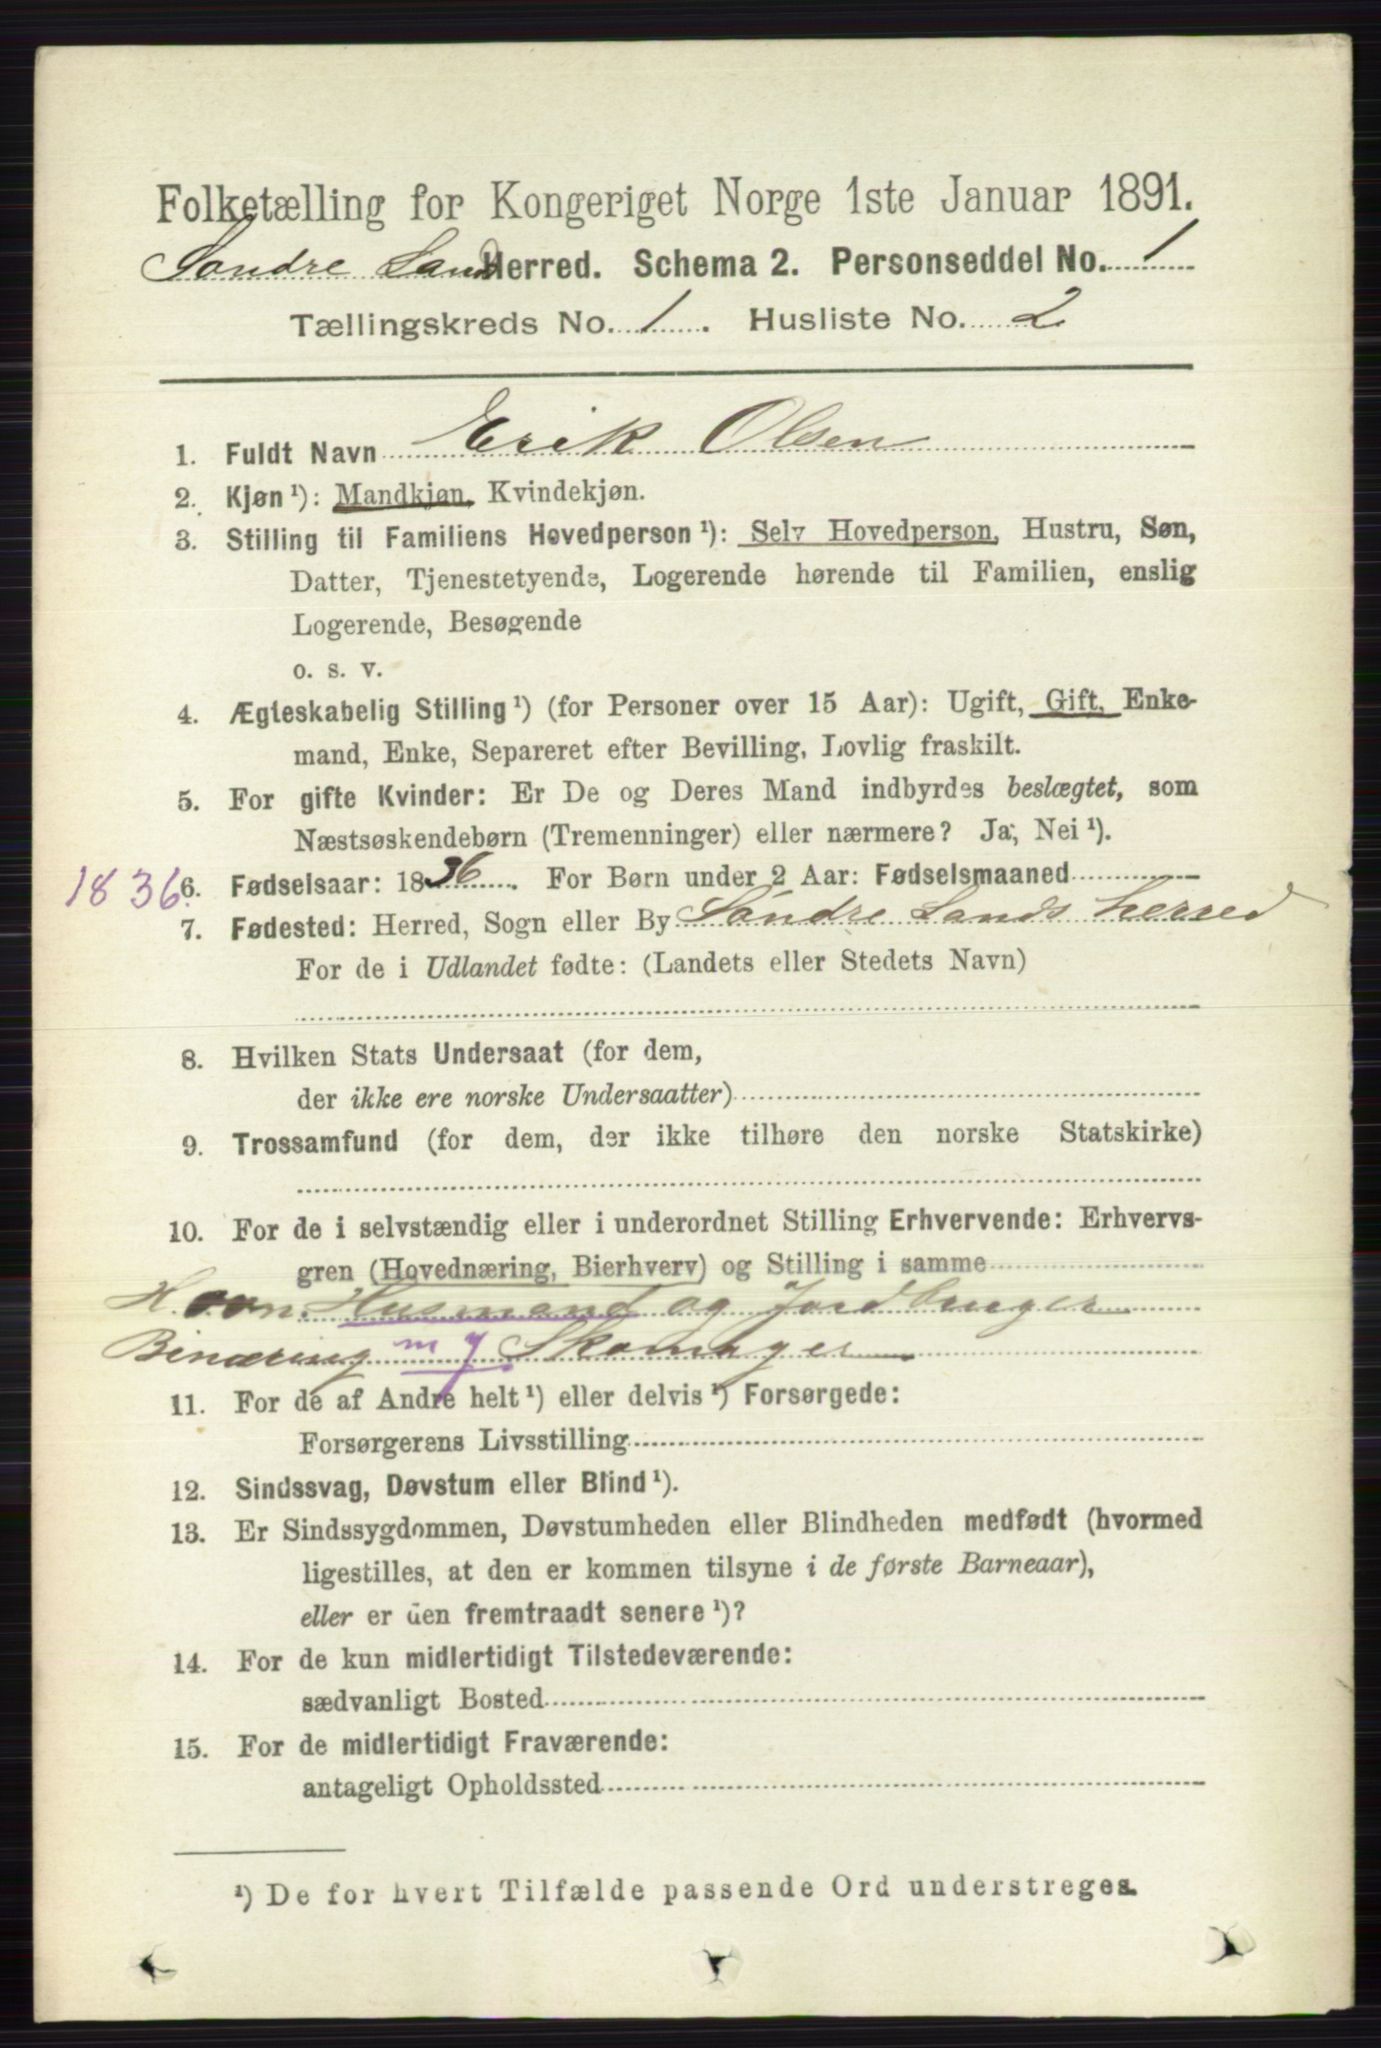 Folketælling for Kongeriget Norge 1ste Januar 1891.
Søndre Land Herred. Schema 2. Personseddel No. 1
Tællingskreds No. 1. Husliste No. 2
1. Fuldt Navn Erik Olsen
2. Kjøn ¹): Mandkjøn, Kvindekjøn.
3. Stilling til Familiens Hovedperson ¹): Selv Hovedperson, Hustru, Søn,
Datter, Tjenestetyende, Logerende hørende til Familien, enslig
Logerende, Besøgende
o. s. v.
4. Ægteskabelig Stilling ¹) (for Personer over 15 Aar): Ugift, Gift, Enke-
mand, Enke, Separeret efter Bevilling, Lovlig fraskilt.
5. For gifte Kvinder: Er De og Deres Mand indbyrdes beslægtet, som
Næstsøskendebørn (Tremenninger) eller nærmere? Ja, Nei ¹).
1836 6. Fødselsaar: 1836. For Børn under 2 Aar: Fødselsmaaned
7. Fødested: Herred, Sogn eller By Søndre Lands herred
For de i Udlandet fødte: (Landets eller Stedets Navn)
8. Hvilken Stats Undersaat (for dem,
der ikke ere norske Undersaatter)
9. Trossamfund (for dem, der ikke tilhøre den norske Statskirke)
10. For de i selvstændig eller i underordnet Stilling Erhvervende: Erhvervs-
gren (Hovednæring, Bierhverv) og Stilling i samme
Husmand og Jordbruger
Binæring m j Skomager
11. For de af Andre helt ¹) eller delvis ¹) Forsørgede:
Forsørgerens Livsstilling
12. Sindssvag, Døvstum eller Blind ¹).
13. Er Sindssygdommen, Døvstumheden eller Blindheden medfødt (hvormed
ligestilles, at den er kommen tilsyne i de første Barneaar),
eller er den fremtraadt senere ¹)?
14. For de kun midlertidigt Tilstedeværende:
sædvanligt Bosted
15. For de midlertidigt Fraværende:
antageligt Opholdssted
¹) De for hvert Tilfælde passende Ord understreges.